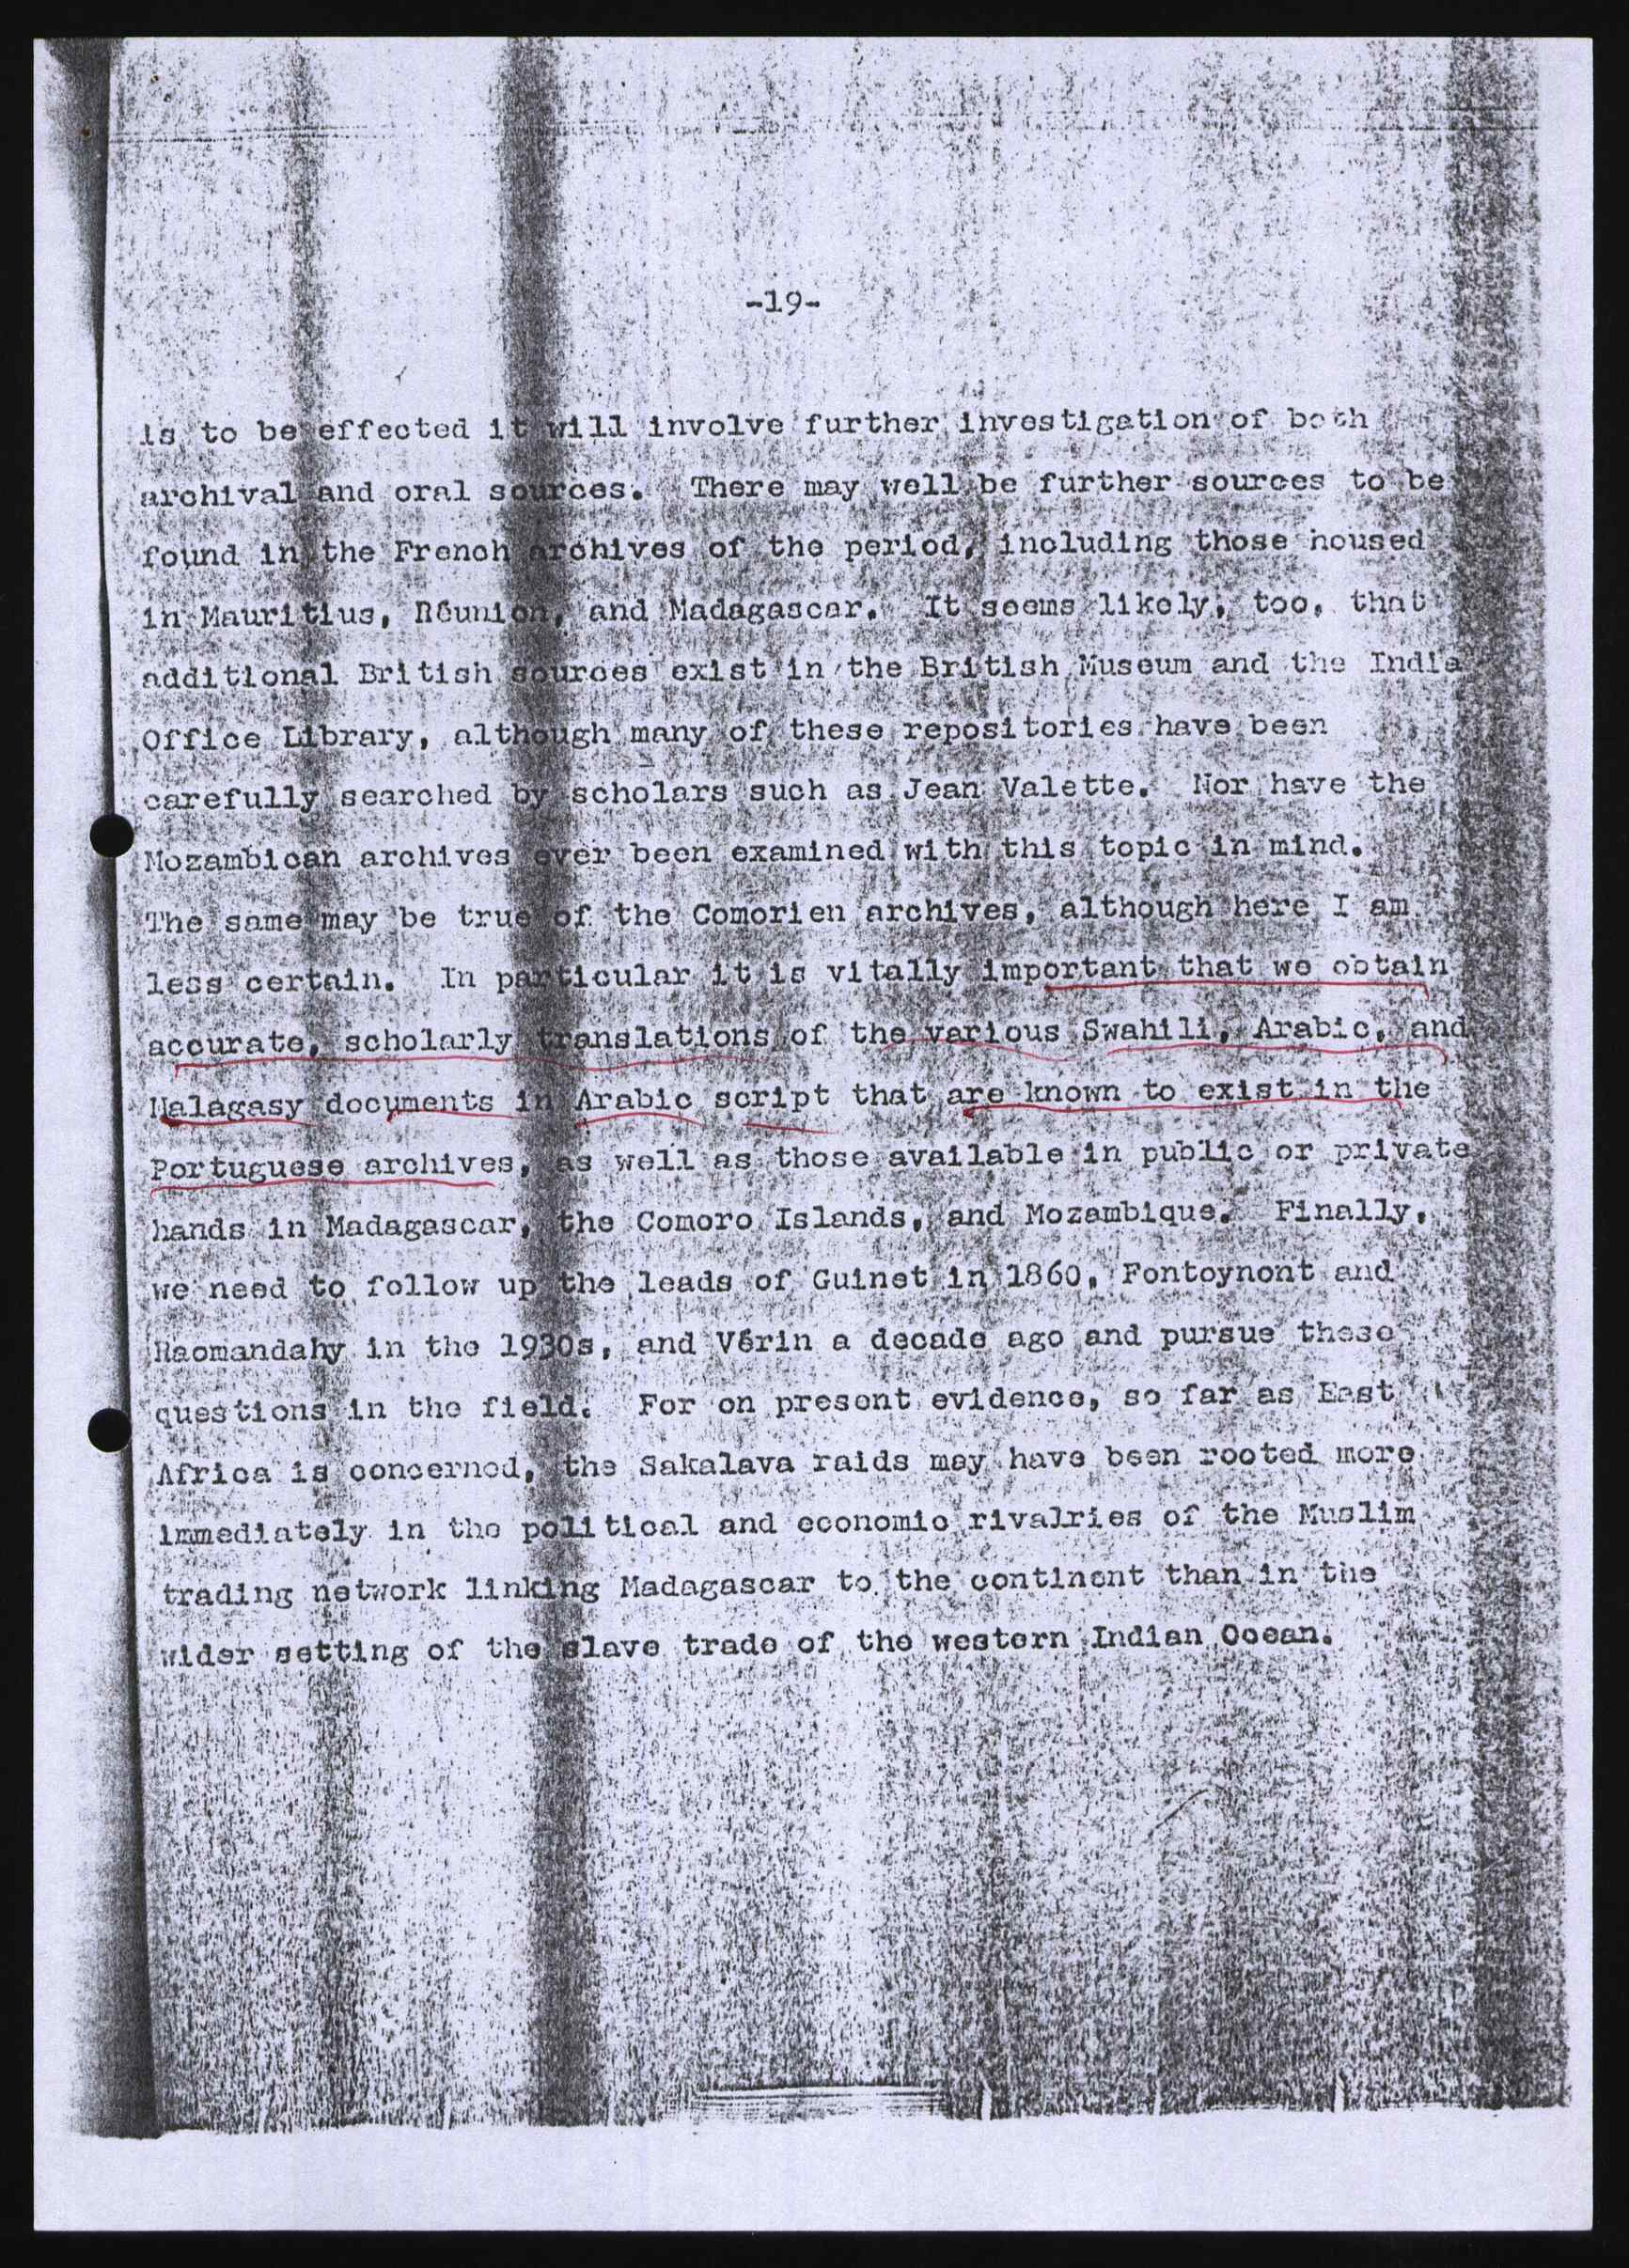 -19-
is to be effected it will involve further investigation of both
archival and oral sources. There may well be further sources to be
found in the French archives of the period, including those housed
in Mauritius, Réunion, and Madagascar. It seems likely, too, that
additional British sources exist in the British Museum and the India
Office Library, although many of these repositories have been
carefully searched by scholars such as Jean Valette. Nor have the
Mozambican archives ever been examined with this topic in mind.
The same may be true of the Comorien archives, although here I am
less certain. In particular it is vitally important that we obtain
accurate, scholarly translations of the various Swahili, Arabic, and
Malagasy documents in Arabic script that are known to exist in the
Portuguese archives, as well as those available in public or private
hands in Madagascar, the Comoro Islands, and Mozambique. Finally,
we need to follow up the leads of Guinet in 1860, Fontoynont and
Raomandahy in the 1930s, and Vérin a decade ago and pursue these
questions in the field. For on present evidence, so far as East
Africa is concerned, the Sakalava raids may have been rooted more
immediately in the political and economic rivalries of the Muslim
trading network linking Madagascar to the continent than in the
wider setting of the slave trade of the western Indian Ocean.